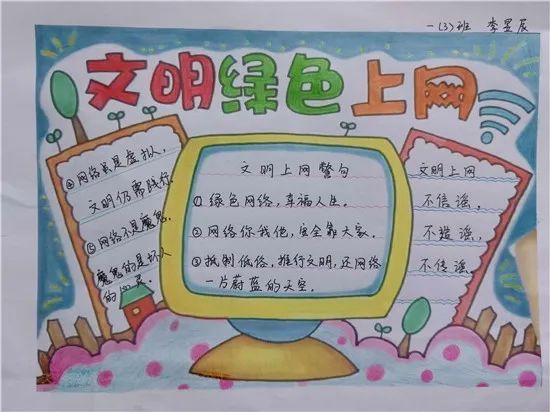 一(3)班 李昱辰
文明绿色上网
文明上网警句
①绿色网络，幸福人生。
②网络你我他，安全靠大家。
③抵制低俗，推行文明，还网络
一片蔚蓝的天空。
④网络虽是虚拟，
文明仍需践行。
⑤网络不是魔鬼，
魔鬼的是坏人
的心灵。
文明上网
不信谣，
不造谣，
不传谣。